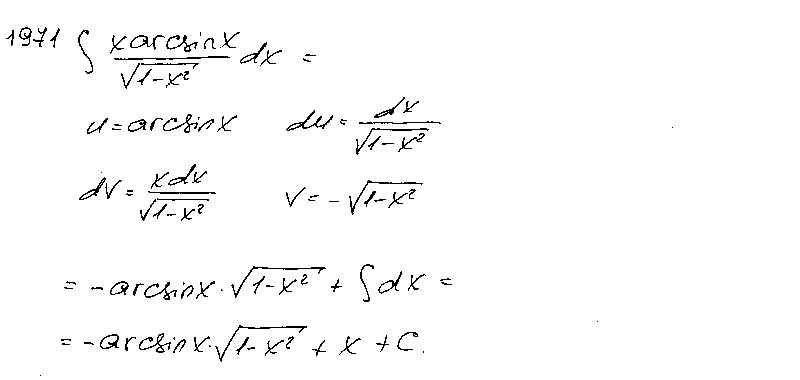 1971 ∫ x arcsinx / √(1-x²) dx =
u = arcsinx du = dx / √(1-x²)
dv = xdx / √(1-x²) v = -√(1-x²)
= -arcsinx · √(1-x²) + ∫ dx =
= -arcsinx · √(1-x²) + x + C.